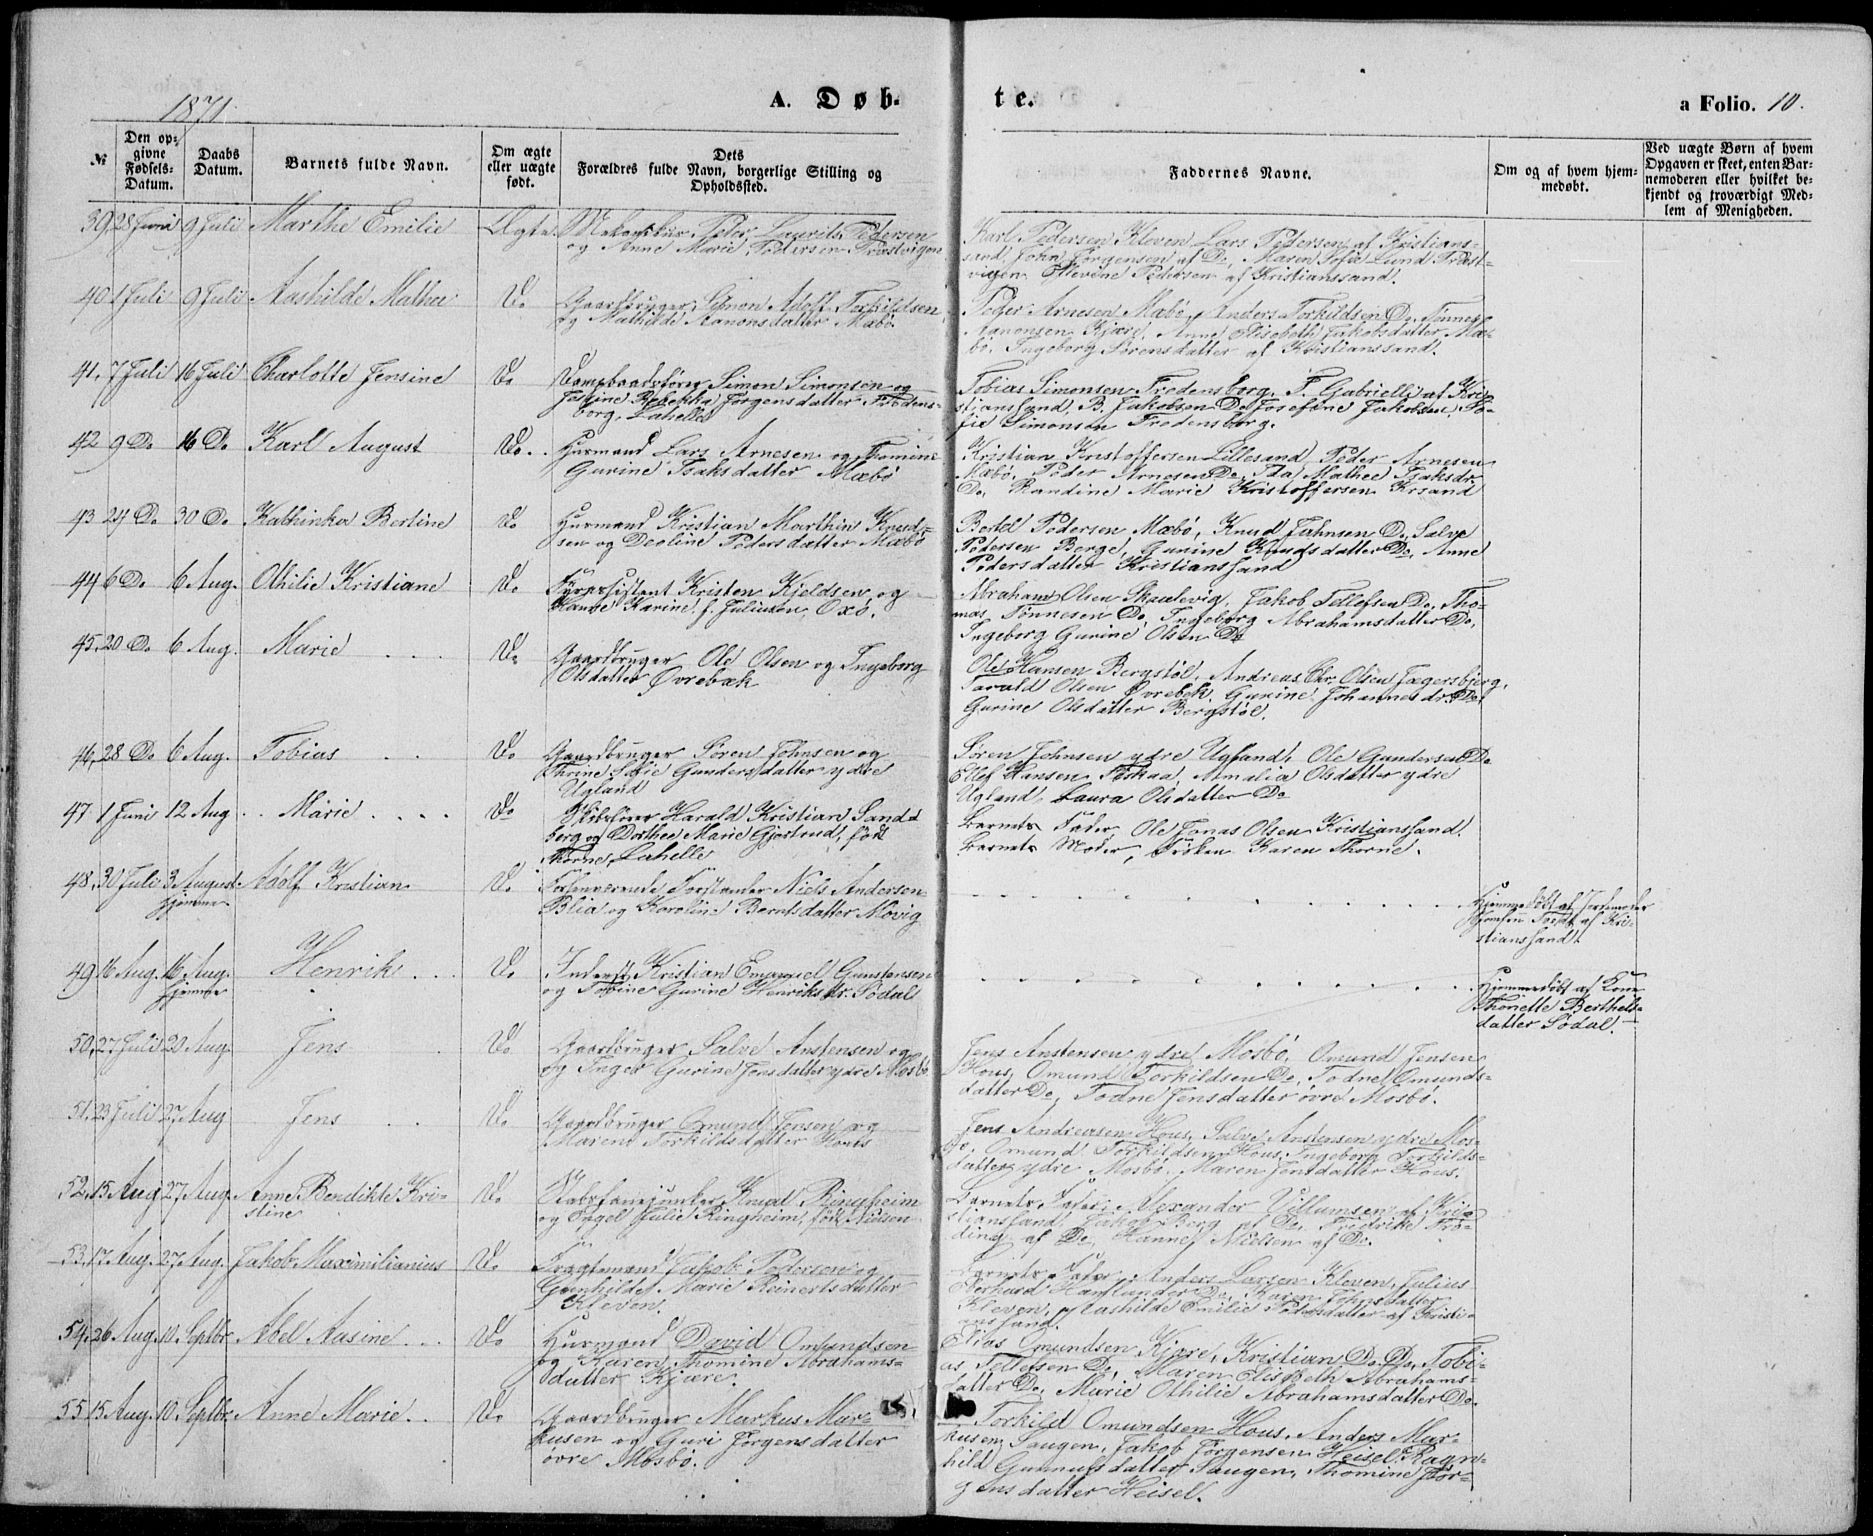 1871
A. Døb-
te.
a Folio. 10.
№
Den op-
givne
Fødsels-
Datum.
Daabs
Datum.
Barnets fulde Navn.
Om ægte
eller uægte
født.
Dets
Forældres fulde Navn, borgerlige Stilling og
Opholdssted.
Faddernes Navne.
Om og af hvem hjem-
medøbt.
Ved uægte Børn af hvem
Opgaven er skeet, enten Bar-
nemoderen eller hvilket be-
kjendt og troværdigt Med-
lem af Menigheden.
39, 28 Juni 9 Juli Marthe Emilie Ægte Peder Laurits Pedersen
og Anne Marie Pedersen
Karl Pedersen Kleven, Lars Pedersen af Kristians-
sand, John Jørgensen af Do, Maren Sofie Lund
Pedersen af Kristianssand.
40 1 Juli 9 Juli Aashilde Mathea Do Gaardbruger Simon Adolf Torkildsen
og Mathilde Aanonsdatter Mæbø.
Peder Arnesen Mæbø, Anders Torkildsen Do, Tønnes
Aanonsen Kjære, Anne Elisebeth Jakobsdatter Mæ-
bø. Ingeborg Sørensdatter af Kristianssand.
41, 7 Juli 16 Juli Charlotte Jensine Do Simon Simonsen og
Rebekka Jørgensdatter Fredens-
borg, Lahelle
Tobias Simonsen Fredensborg, F. Gabrielli af Kri-
stianssand, B. Jakobsen Do, Josefine Jakobsen, So-
fie Simonsen Fredensborg.
42 9 Do 16 Do Karl August Do. Huusmand Lars Arnesen og Tomine
Gurine Isaksdatter Mæbø
Kristian Kristoffersen Lillesand, Peder Arnesen
Mæbø, Peder Arnesen Do, Ida Mathea Isaksdr
Do, Randine Marie Kristoffersen Krsand
43 24 Do 30 Do Kathinka Bertine Do Huusmand Kristian Marthin Knud-
sen og Deoline Pedersdatter Mæbø
Bertel Pedersen Mæbø, Knud Jahnsen Do, Salve
Pedersen Berge, Gurine Knudsdatter Do, Anne
Pedersdatter Kristianssand
44 6 Do 6 Aug. Othilie Kristiane Do Fyrassistent Kristen Kjeldsen og
Hanne Karine f. Juliusen, Oxø.
Abraham Olsen Skaalevig, Jakob Tellefsen Do, Tho-
mas Tønnesen Do, Ingeborg Abrahamsdatter Do,
Ingeborg Gurine Olsen Do
45, 20 Do 6 Aug. Marie Do Gaardbruger Ole Olsen og Ingeborg
Olsdatter Øvrebæk
Ole Hansen Bergstøl, Andreas Chr. Olsen Jægersbjerg,
Taruld Olsen Øvrebek, Gurine Johannesdr Do,
Gurine Olsdatter Bergstøl.
46, 28 Do 6 Aug. Tobias Do Gaardbruger Søren Johnsen og
Thrine Sofie Gundersdatter ydre
Ugland
Søren Johnsen ydre Ugland, Ole Gundersen Do
Ellef Hansen Foskaa, Amalia Olsdatter ydre
Ugland, Laura Olsdatter Do
47 1 Juni 12 Aug. Marie Do Skibsfører Harald Kristian Sand-
berg og Dorthea Marie Gjertrud, født
Thorne, Lahelle
Barnets Fader, Ole Jonas Olsen Kristianssand.
Barnets Moder, Frøken Karen Thorne.
48, 30 Juli 3 August Adolf Kristian Do Forhenværende Forstander Niels Andersen
hjemme
Blia og Karoline Berntsdatter Møvig
Hjemmedøbt af Jordemoder
af Kri-
stianssand.
49 16 Aug. 16 Aug. Henrik Do Inderst Kristian Emanuel Gunstensen
hjemme
og Tobine Gurine Henriksdr. Sødal
Hjemmedøbt af Kone
Thonette Berthels-
datter Sødal.
50, 27 Juli 20 Aug. Jens Do Gaardbruger Salve Anstensen og
og Inger Gurine Jensdatter ydre Mosbø
Jens Anstensen ydre Mosbø, Omund Jensen
Hous, Omund Torkildsen Do, Todne Omunds-
datter Do, Todne Jensdatter øvre Mosbø.
51, 23 Juli 27 Aug Jens Do Gaardbruger Omund Jensen og
Maren Torkildsdatter Hous
Jens Andreasen Hous, Salve Anstensen ydre Mos-
bø, Omund Torkildsen Hous, Ingeborg Torkilds-
datter ydre Mosbø, Maren Jensdatter Hous.
52, 15 Aug 27 Aug. Anne Bendikte Kri-
stine
Do Stabsfanejunker Knud Ringheim
og Engel Julie Ringheim, født Nielsen
Barnets Fader, Alexander Villumsen af Kri-
stianssand, Jakob Berg af Do, Fredrikke
af Do, Hanne Nielsen af Do.
53, 17 Aug. 27 Aug. Jakob Maximilianius Do Fragtemand Jakob Pedersen og
Gunhilde Marie Reinertsdatter
Kleven.
Barnets Fader, Anders Larsen Kleven, Julius
Do, Karen Johnsdatter
Kleven, Mathilde Emilie Pedersdatter af Kristi-
anssand.
54, 26 Aug. 10 Septbr. Abel Aasine Do Huusmand David Omundsen
og Karen Thomine Abrahams-
datter Kjære.
Elias Omundsen Kjære, Kristian Do Do, Tobi-
as Tellefsen Do, Maren Elisebeth Abrahams-
datter Do, Marie Othilie Abrahamsdatter Do.
55 15 Aug. 10 Septbr. Anne Marie Do Gaardbruger Markus Mar-
kusen og Guri Jørgensdatter
øvre Mosbø.
Torkild Omundsen Hous, Anders Mar-
kusen Saugen, Jakob Jørgensen Heisel, Ragn-
hild Gunnufsdatter Saugen, Thomine Jør-
gensdatter Heisel.